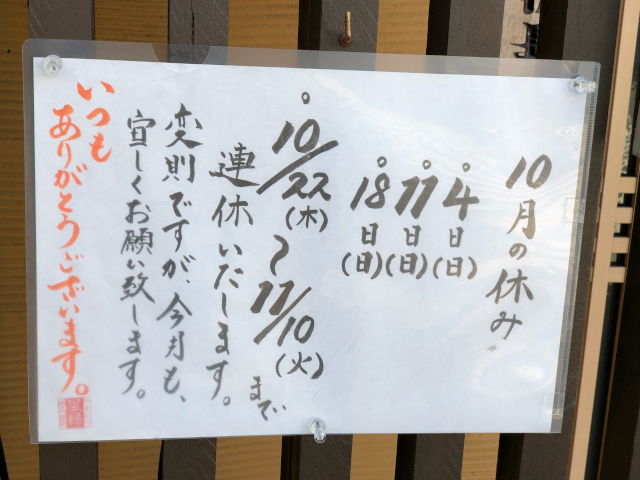 10月の休み
。4日(日)
。11日(日)
。18日(日)
。10/22(木)〜11/10(火)まで
連休いたします。
変則ですが、今月も、
宜しくお願い致します。
いつも
ありがとうございます。